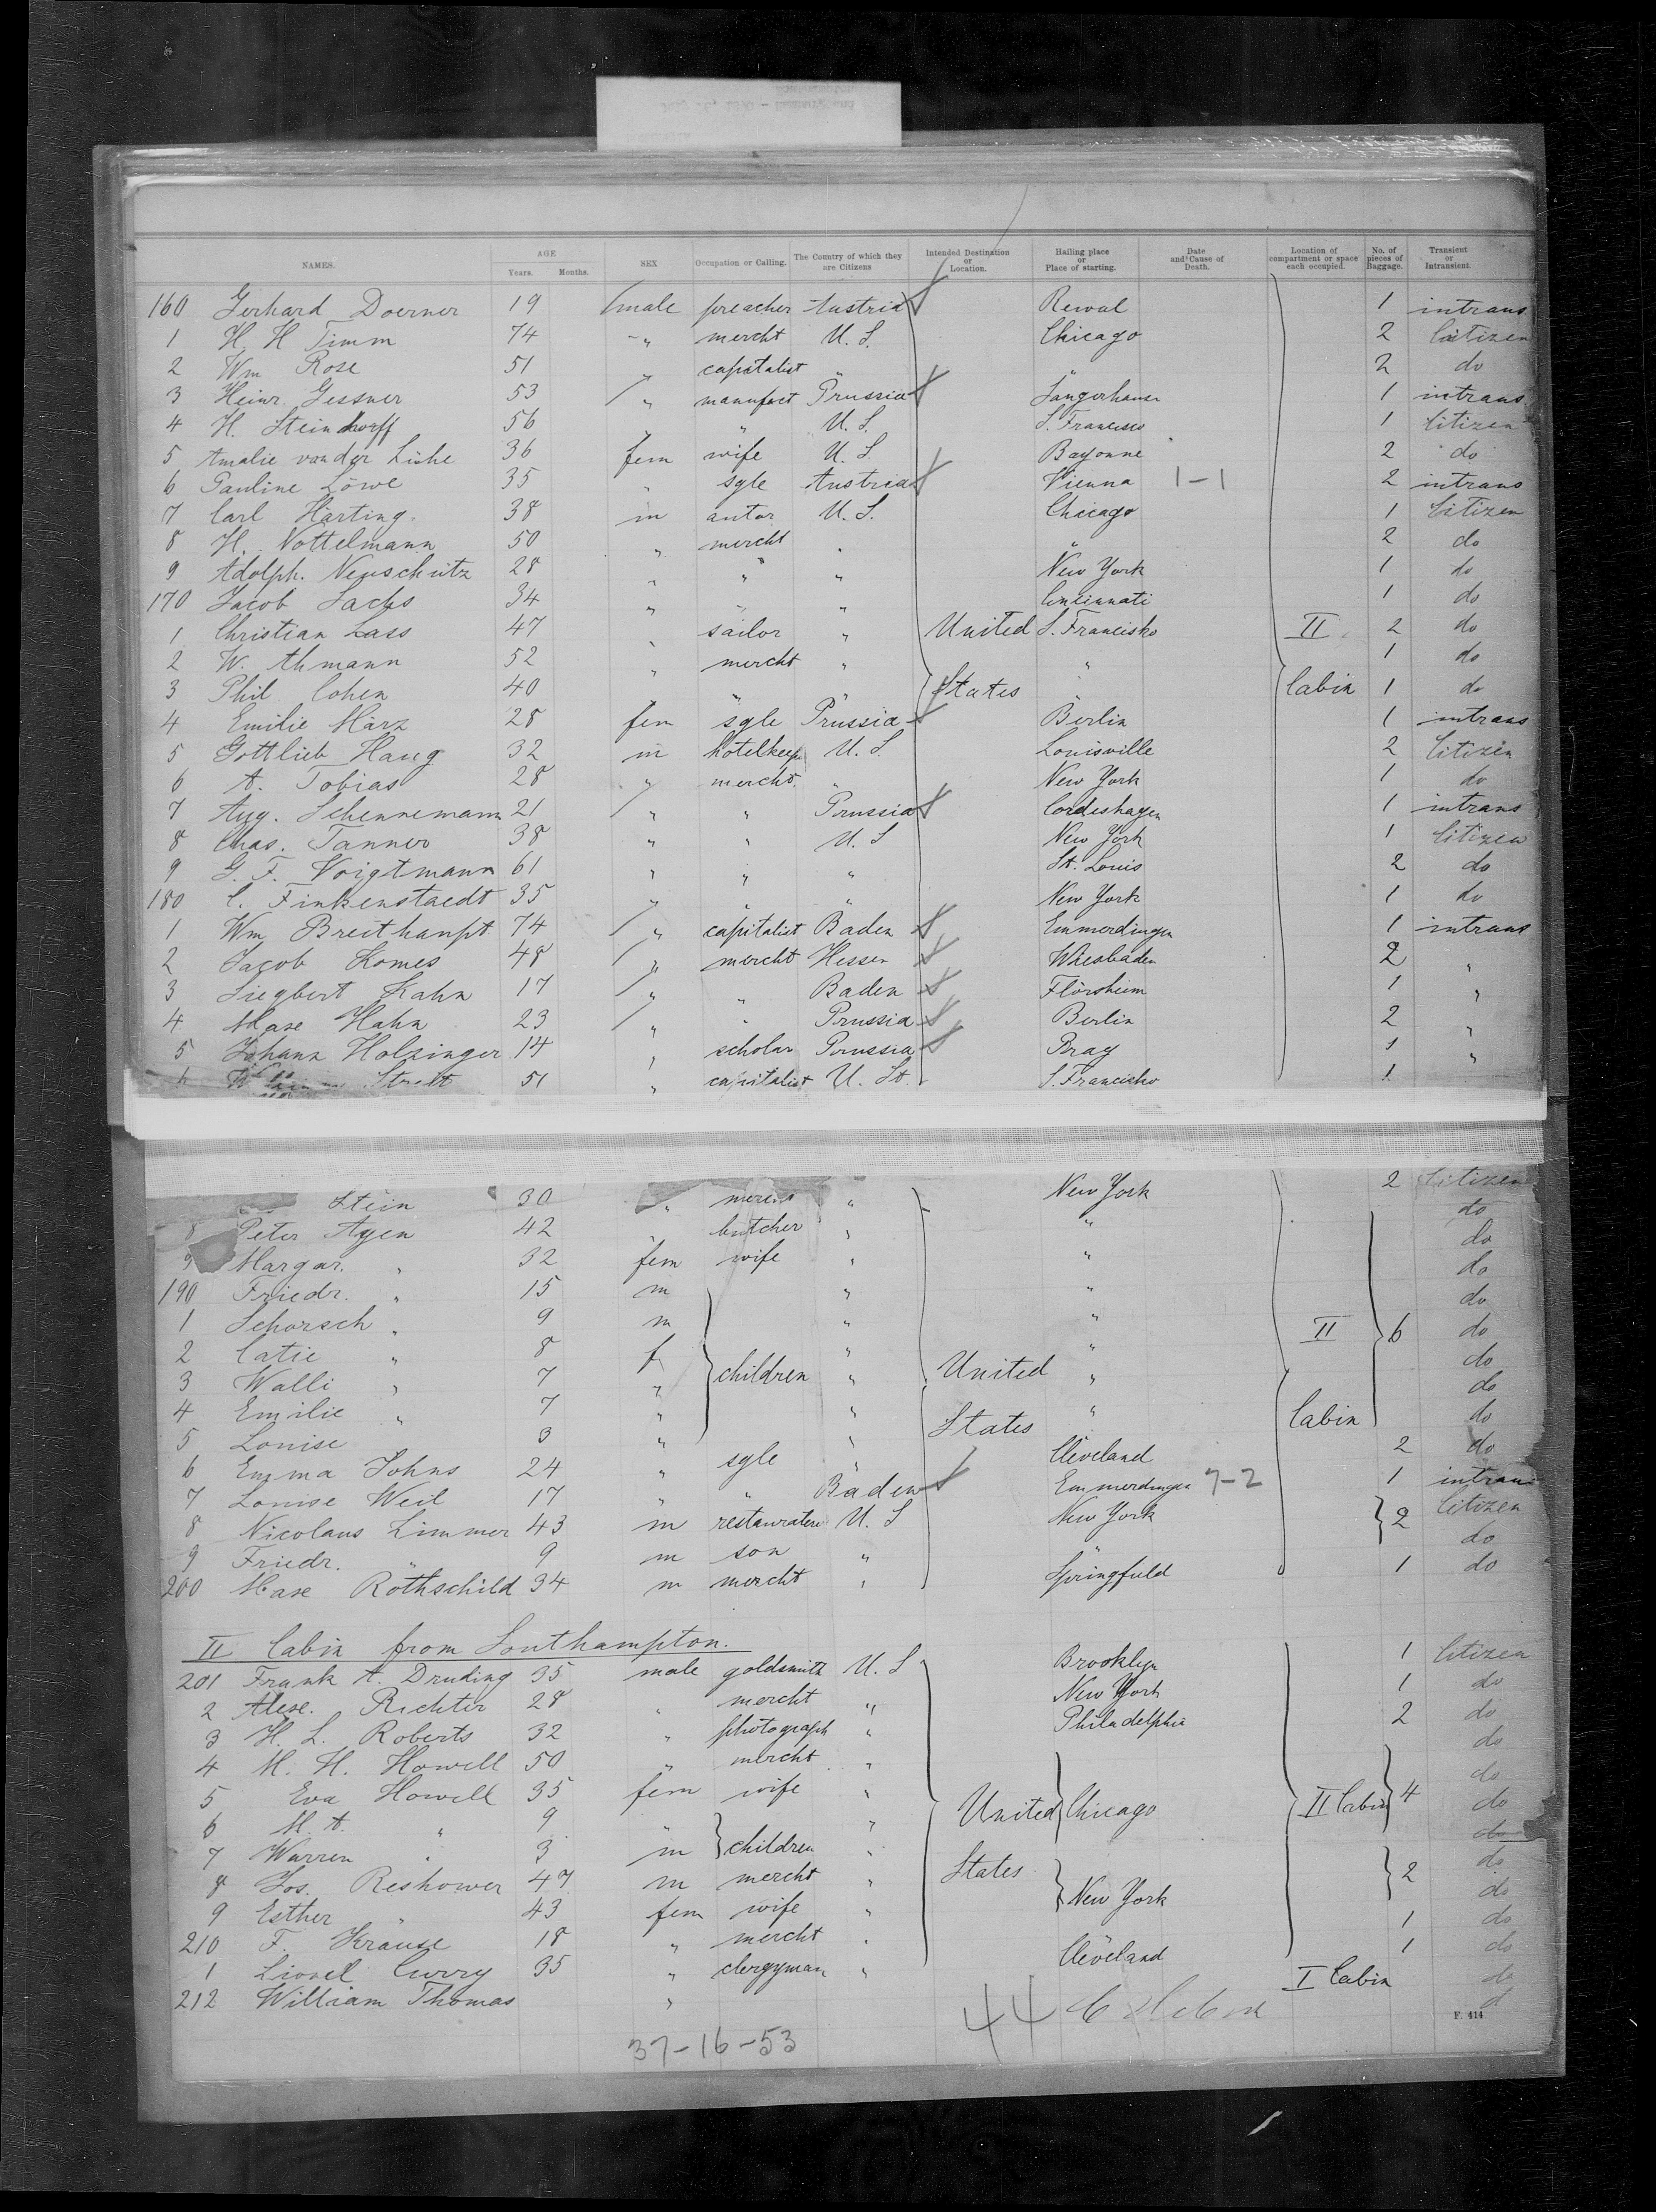 NAMES. AGE Years. Months. SEX Occupation or Calling. The Country of which they are Citizens Intended Destination or Location. Hailing place or Place of starting. Date and Cause of Death. Location of compartment or space each occupied. No. of pieces of Baggage. Transient or Intransient.
160 Gerhard Doerner 19 male preacher Austria Rewal 1 intrans
1 H. H Timm 74 " mercht U. S. Chicago 2 Citizen
2 Wm Rose 51 " capitalist " " 2 do
3 Heinr. Gessner 53 " manufact Prussia Sangerhausen 1 intrans
4 H. Steindorff 56 " " U. S. S. Francisco 1 Citizen
5 Amalie von der Lühe 36 fem wife U. S. Bayonne 2 do
6 Pauline Löwe 35 " sgle Austria Vienna 1-1 2 intrans
7 Carl Härting 38 m autor U. S. Chicago 1 Citizen
8 H. Nottelmann 50 " mercht " " 2 do
9 Adolph. Neuschütz 28 " " " New York 1 do
170 Jacob Sachs 34 " " " Cincinnati 1 do
1 Christian Lass 47 " sailor " United S. Francisko II 2 do
2 W. Ahmann 52 " mercht " " 1 do
3 Phil Cohen 40 " " " States " Cabin 1 do
4 Emilie März 28 fem sgle Prussia Berlin 1 intrans
5 Gottlieb Haug 32 m hotelkeep U. S. Louisville 2 Citizen
6 A. Tobias 28 " mercht. " New York 1 do
7 Aug. Schennemann 21 " " Prussia Cordeshagen 1 intrans
8 Chas. Tanner 38 " " U. S New York 1 Citizen
9 G. F. Voigtmann 61 " " " St. Louis 2 do
180 C. Finkenstaedt 35 " " " New York 1 do
1 Wm Breithaupt 74 " capitalist Baden Emmerdingen 1 intrans
2 Jacob Homes 48 " mercht Hessen Wiesbaden 2 "
3 Siegbert Kahn 17 " " Baden Flörsheim 1 "
4 Max Hahn 23 " " Prussia Berlin 2 "
5 Johann Holzinger 14 " scholar Prussia Brag 1 "
51 " capitalist U. St. S. Francisko 1
Stein 30 " " New York 2 Citizen
8 Peter Agen 42 " butcher " " do
9 Margar. " 32 fem wife " " do
190 Friedr. " 15 m " " do
1 Schorsch " 9 m " " do
2 Catie " 8 f " " II 6 do
3 Walli " 7 " children " United " do
4 Emilie " 7 " " " do
5 Louise 3 " " States Cabin do
6 Emma Johns 24 " sgle " Cleveland 2 do
7 Louise Weil 17 " " Baden Emmerdingen 7-2 1 intrans
8 Nicolaus Limmer 43 m restaurateur U. S New York 2 Citizen
9 Friedr. " 9 m son " " do
200 Max Rothschild 34 m mercht " Springfield 1 do
II Cabin from Southampton.
201 Frank A. Druding 35 male goldsmith U. S Brooklyn 1 Citizen
2 Alex. Richter 28 " mercht " New York 1 do
3 H. L. Roberts 32 " photograph " Philadelphia 2 do
4 M. H. Howell 50 " mercht " do
5 Eva Howell 35 fem wife " do
6 M. A. " 9 " " United Chicago II Cabin 4 do
7 Warren " 3 m children " do
8 Jos. Reshower 47 m mercht " States 2 do
9 Esther " 43 fem wife " New York do
210 F. Krause 18 " mercht " " 1 do
1 Lionel Curry 35 " clergyman " Cleveland 1 do
212 William Thomas " I Cabin
37-16-53 44
F. 414